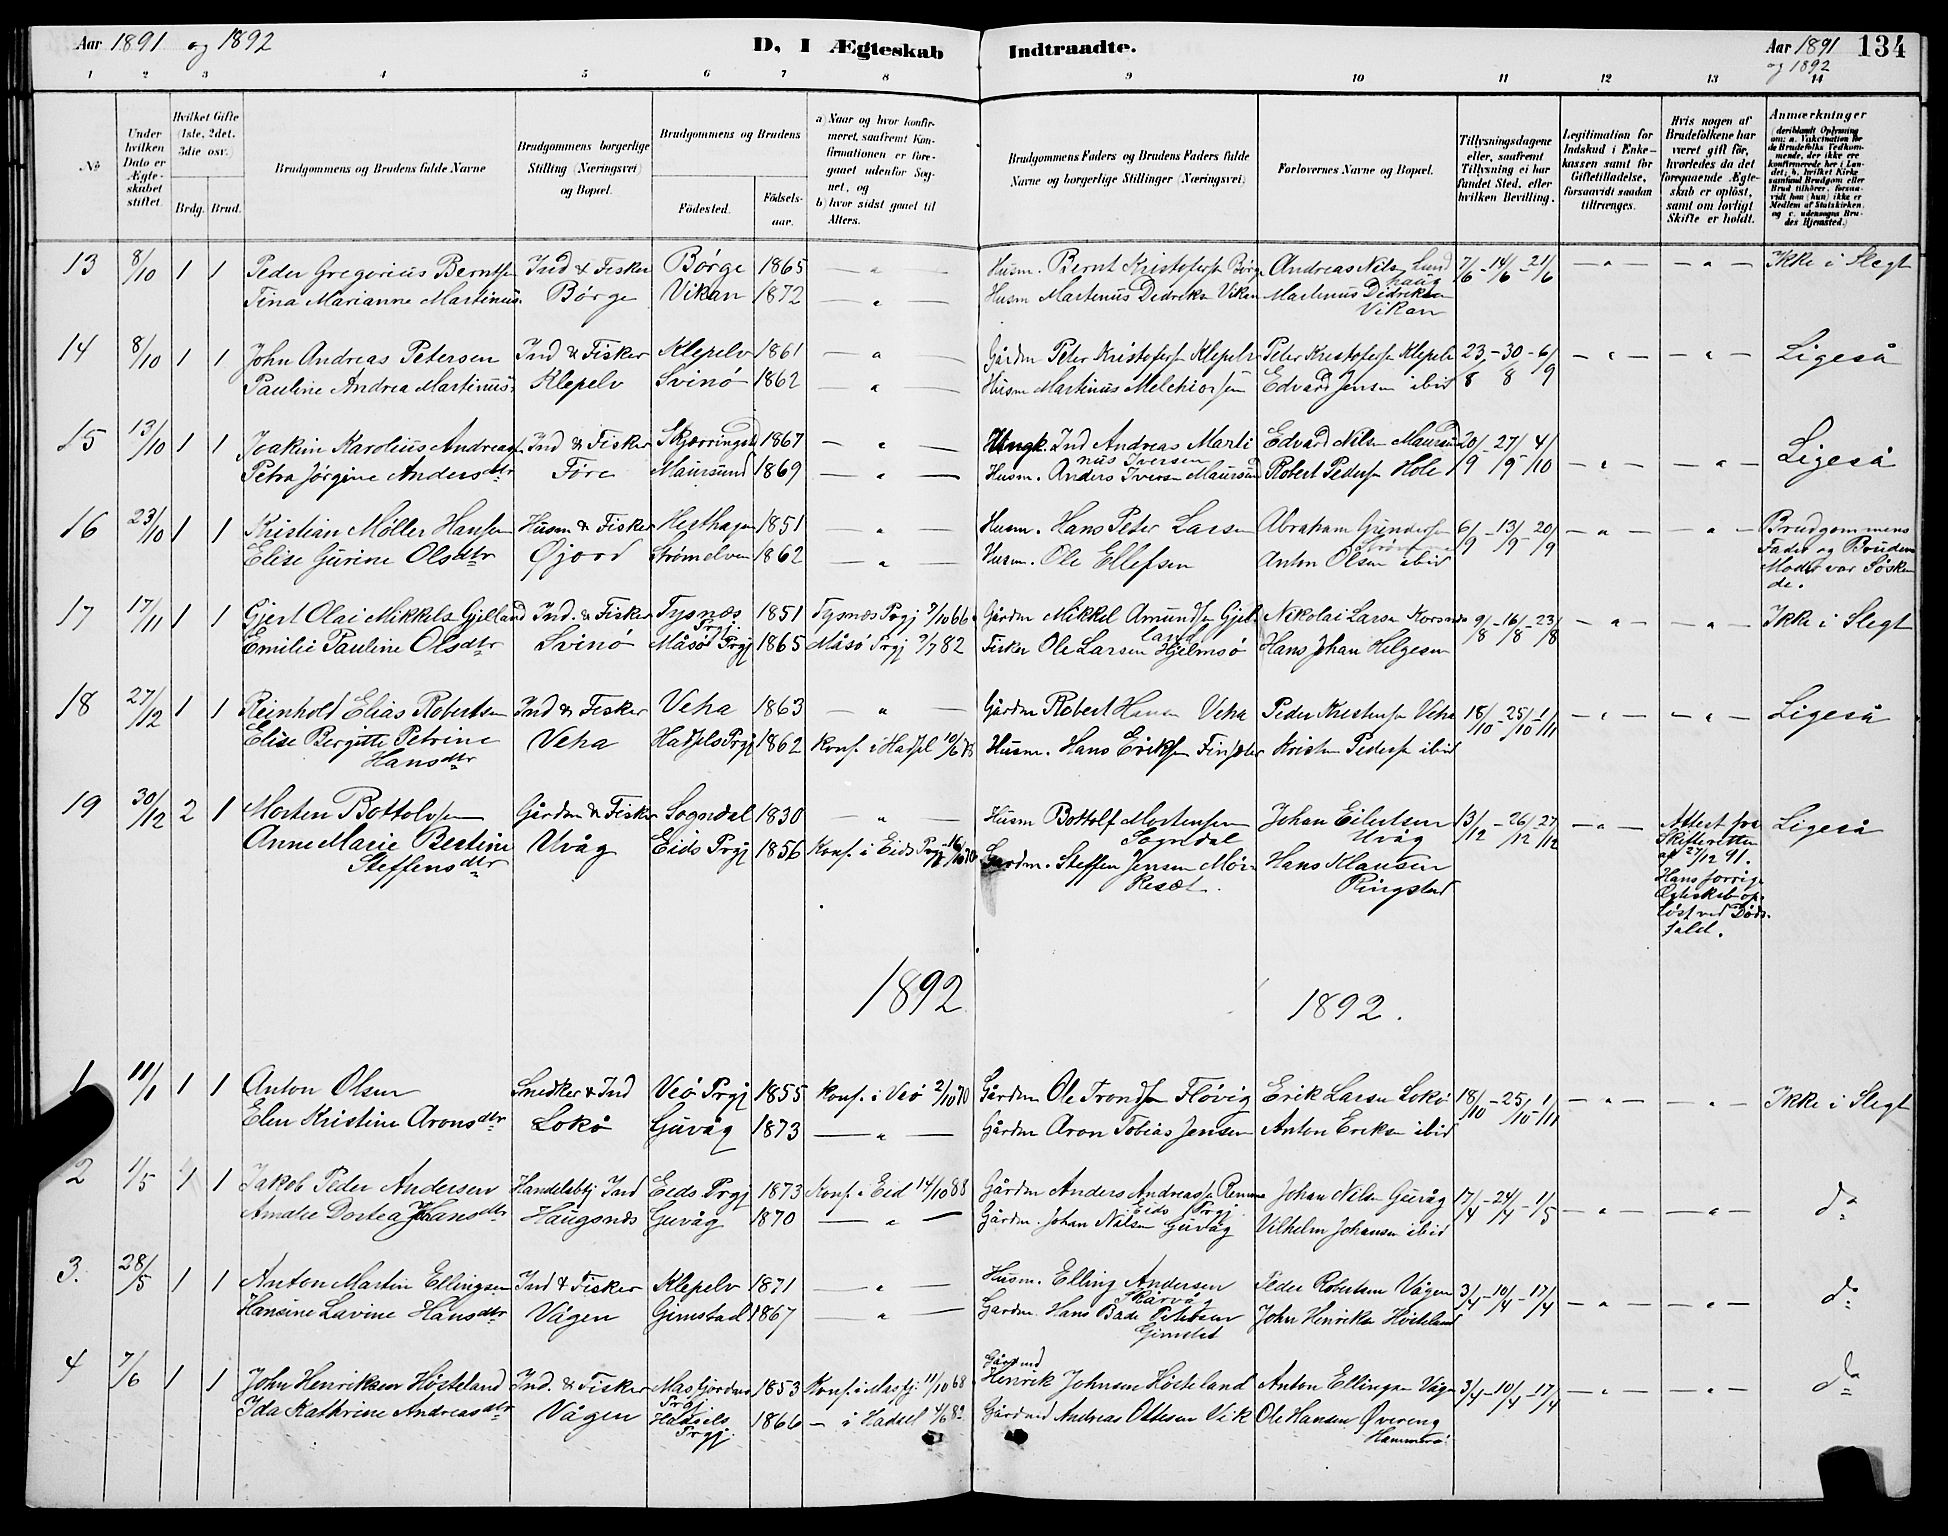 Aar 1891 og 1892
D, I Ægteskab Indtraadte.
Aar 1891 og 1892
134
1 2 3 4 5 6 7 8 9 10 11 12 13 14
No
Under hvilken Dato er Ægteskabet stiftet.
Hvilket Gifte (1ste, 2det, 3die osv.)
Brdg. Brud.
Brudgommens og Brudens fulde Navne
Brudgommens borgerlige Stilling (Næringsvei) og Bopæl.
Brudgommens og Brudens
Fødested.
Fødselsaar.
a) Naar og hvor konfirmeret, saafremt Konfirmationen er foregaaet udenfor Sognet, og
b) hvor sidst gaaet til Alters.
Brudgommens Faders og Brudens Faders fulde Navne og borgerlige Stillinger (Næringsvei)
Forlovernes Navne og Bopæl.
Tillysningsdagene eller, saafremt Tillysning ei har fundet Sted, efter hvilken Bevilling.
Legitimation for Indskud i Enkekassen samt for Giftetilladelse, forsaavidt saadan tiltrænges.
Hvis nogen af Brudefolkene har været gift før, hvorledes da det foregaaende Ægteskab er opløst, samt om lovligt Skifte er holdt.
Anmærkninger
13 8/10 1 1 Peder Gregorius Berntsen Ind & Fisker Børge 1865 — " — Husm. Bernt Kristofersen Børge Andreas Nils. Lundhaug 7/6 - 14/6 - 21/6 — " — — " — Ikke i Slegt
Tina Marianne Martinus. Børge Vikan 1872 — " — Husm Martinus Dedreks. Vikan Martinus Didreksen Vikan
14 8/10 1 1 John Andreas Petersen Ind & Fisker Klepelv 1861 — " — Gårdm Peter Kristofersen Klepelv Peter Kristofersen Klepelv 23/8 - 30/8 - 6/9 — " — — " — Ligeså
Pauline Andrea Martinus. Klepelv Svinø 1862 — " — Husm Martinus Melchiorsen Edvard Jensen ibid
15 13/10 1 1 Joakim Karolius Andreasen Ind & Fisker Skjerringstad 1867 — " — Ungk. Ind Andreas Martinus Iversen Edvard Nilsen Maursund 20/9 - 27/9 - 4/10 — " — — " — Ligeså
Petra Jørgine Andersdtr Føre Maursund 1869 — " — Husm. Anders Iversen Maursund Robert Pedersen Hole
16 23/10 1 1 Kristian Møller Hansen Husm & Fisker 1851 — " — Husm. Hans Peter Larsen Abraham 6/9 - 13/9 - 20/9 — " — — " — Brudgommens Fader og Brudens Moder var Søskende.
Elise Gurine Olsdtr Øjord Strømelven 1862 — " — Husm. Ole Ellefsen Anton Olsen ibid
17 17/11 1 1 Gjert Olai Mikkels. Gjelland Ind. & Fisker Tysnæs Prgj. 1851 Tysnæs Prgj 7/10 66 Gårdm Mikkel Amundsen Gjelland Nikolai Larsen Korsnes 9/8 - 16/8 - 23/8 — " — — " — Ikke i Slegt
Emilie Pauline Olsdtr Svinø Måsø Prgj 1865 Måsø Prgj 2/7 82 Fisker Ole Larsen Hjelmsø Hans Johan Helgesen
18 27/12 1 1 Reinholt Elias Robertsen Ind & Fisker Veha 1863 — " — Gårdm Robert Hansen Veha Peder Kristensen Veha 18/10 - 25/10 - 1/11 — " — — " — Ligeså
Elise Bergitte Petrine Hansdtr Veha Hadsels Prgj 1862 Konf. i Hadsel 10/6 78 Husm. Hans Eriksen Kristen Pedersen ibid
19 30/12 2 1 Morten Bottolvsen Gårdm & Fisker Sogndal 1830 — " — Husm Bottolf Mortensen Sogndal Johan Eilertsen Uvåg 13/12 - 26/12 - 27/12 — " — Attest fra Skifteretten af 27/12 91. Hans forrige Ægteskab opløst ved Dødsfald. Ligeså
Anne Marie Bertine Steffensdtr Uvåg Eids Prgj 1856 Konf. i Eids Prgj 16/10 70 Gårdm. Steffen Jensen Hans Klausen Ringstad
1892
1892.
1 11/1 1 1 Anton Olsen Snedker & Ind Veø Prgj 1855 Konf. i Veø 2/10 70 Gårdm Ole Trondsen Fløvig Erik Larsen Lokø 18/10 - 25/10 - 1/11 — " — — " — Ikke i Slegt
Elen Kristine Aronsdtr Lokø Guvåg 1873 — " — Gårdm Aron Tobias Jensen Anton Eriksen ibid
2 1/5 1 1 Jakob Peder Andersen Handelsbtj Ind Eids Prgj 1873 Konf. i Eid 14/10 88 Gårdm Anders Andreassen Eids Prgj Johan Nilsen Guvåg 17/4 - 24/4 - 1/5 — " — — " — do
Amalie Dortea Johansdtr Haugsnes Guvåg 1870 — " — Gårdm. Johan Nilsen Guvåg Vilhelm Johansen ibid
3. 28/5 1 1 Anton Martin Ellingsen Ind & Fisker Klepelv 1871 — " — Husm. Elling Andersen Skårvåg Peder Robertsen Vågen 3/4 - 10/4 - 17/4 — " — — " — do
Hansine Lavine Hansdtr Vågen Gimstad 1867 — " — Gårdm. Hans Bade Petersen Gimstad John Henriksen Høsteland
4 7/6 1 1 John Henriksen Høsteland Ind. & Fisker Masfjordens Prgj 1853 Konf. i Masfj. 11/10 68 Gårdmd Henrik Johnsen Høsteland Anton Ellingsen Vågen 3/4 - 10/4 - 17/4 — " — — " — do
Ida Kathrine Andreasdtr Vågen Hadsels Prgj. 1866 — i Hadsel 4/6 82 Gårdmd Andreas Ottesen Vik Ole Hansen Øvereng Hammerø.